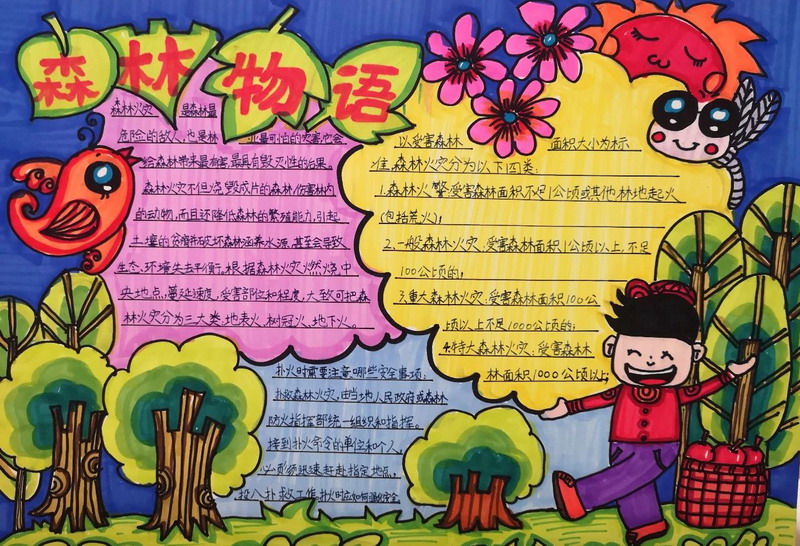 森林物语
森林火灾 是森林最
危险的敌人,也是林 业最可怕的灾害,它会
给森林带来最有害,最具有毁灭性的后果。
森林火灾不但烧毁成片的森林,伤害林内
的动物,而且还降低森林的繁殖能力,引起
土壤的贫瘠并破坏森林涵养水源,甚至会导致
生态环境失去平衡,根据森林火灾燃烧中
央地点,蔓延速度,受害部位和程度,大致可把森
林火灾分为三大类:地表火、树冠火、地下火。
以受害森林 面积大小为标
准,森林火灾分为以下四类:
1.森林火警:受害森林面积不足1公顷或其他林地起火
(包括荒火);
2.一般森林火灾:受害森林面积1公顷以上,不足
100公顷的;
3.重大森林火灾:受害森林面积100公
顷以上不足1000公顷的;
4.特大森林火灾:受害森林
林面积1000公顷以上;
扑火时需要注意哪些安全事项:
扑救森林火灾,由当地人民政府或森林
防火指挥部统一组织和指挥。
接到扑火命令的单位和个人,
必须须迅速赶赴指定地点,
投入扑救工作,扑火时应如何确保安全